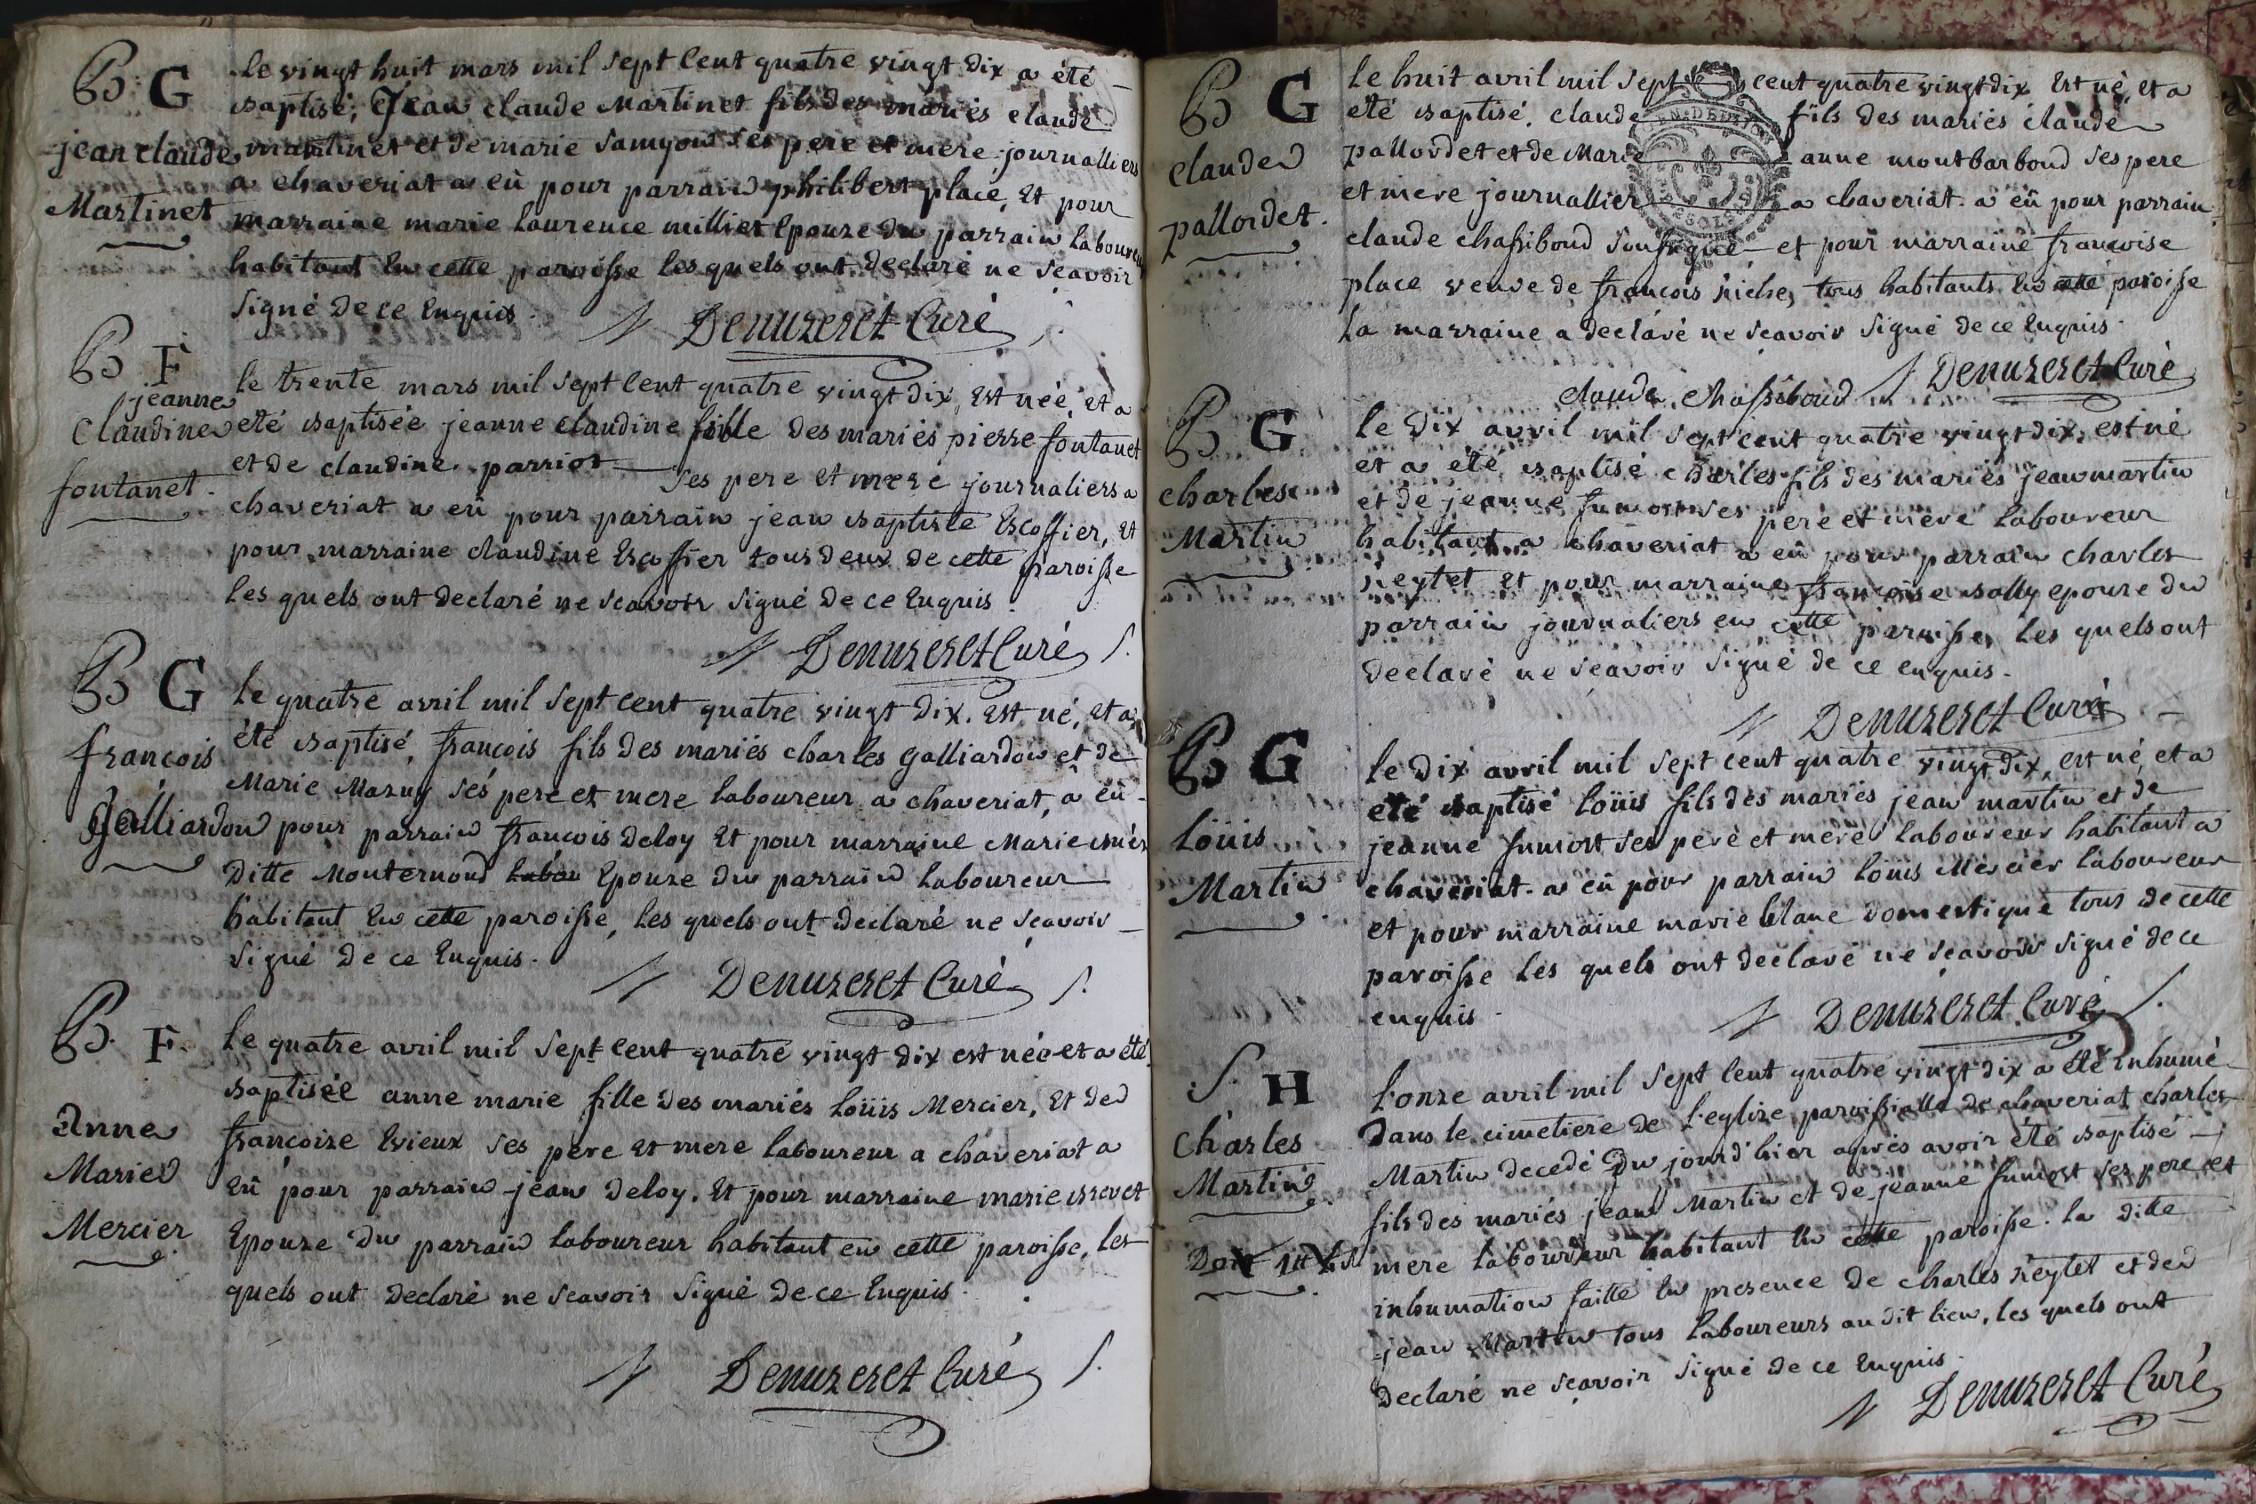 B G
jean claude
Martinet
Le vingt huit mars mil sept Cent quatre vingt Dix a été
baptisé, Jean claude Martinet fils des mariés claude
martinet et de marie samyon ses pere et mere journalliers
a chaveriat a eû pour parrain philibert place, Et pour
marraine marie laurence milliet Epouze du parrain laboureur
habitant En cette paroisse les quels ont declaré ne scavoir
signé De ce Enquis.
Denuzeret Curé
B F
jeanne
Claudine
fontanet
le trente mars mil sept Cent quatre vingt Dix, Est née, et a
eté baptisée jeanne claudine fille des mariés pierre fontanet
et de claudine parriot ses pere et mere journaliers a
chaveriat a eû pour parrain jean baptiste Escoffier, Et
pour marraine claudine Escoffier tous deux de cette paroisse
les quels ont declaré ne scavoir signé De ce Enquis.
Denuzeret Curé
B G
françois
Galliardon
le quatre avril mil sept cent quatre vingt Dix. Est né, et a
été baptisé, françois fils des mariés charles Galliardon et de
Marie Mazuy sés pere et mere laboureur a chaveriat, a eû
pour parrain françois Deloy Et pour marraine Marie
Ditte Monternoud Epouze du parrain laboureur
habitant En cette paroisse, les quels ont declaré ne scavoir
signé De ce Enquis.
Denuzeret Curé
B. F.
Anne
Marie
Mercier
le quatre avril mil sept cent quatre vingt Dix est née et a été
baptisée anne marie fille des mariés loüis Mercier, Et de
francoize Evieux ses pere et mere laboureur a chaveriat a
Eû pour parrain jean Deloy. Et pour marraine marie brevet
Epouze Du parrain laboureur habitant en cette paroisse, les
quels ont declaré ne scavoir signé De ce Enquis.
Denuzeret Curé
B G
claude
pallordet.
le huit avril mil sept cent quatre vingt dix Est né, et a
eté baptisé. claude fils des mariés claude
pallordet et de Marie anne montbarboud ses pere
et mere journallier a chaveriat. a eû pour parrain
claude chassiboud soussigné et pour marraine francoise
place veuve de françois niche, tous habitants En cette paroisse
la marraine a declaré ne scavoir signé de ce Enquis.
Denuzeret Curé
claude Chassiboud
B G
charles
Martin
le Dix avril mil sept cent quatre vingt dix, est né
et a été baptisé charles fils des mariés jean martin
et de jeanne humort ses pere et mere laboureur
habitant a chaveriat a eû pour parrain charles
neytet et pour marraine françoise bolly epouze du
parrain journaliers en cette paroisse, les quels ont
declaré ne scavoir signé de ce enquis.
Denuzeret Curé
B G
loüis
Martin
le Dix avril mil sept cent quatre vingt dix, est né, et a
été baptisé loüis fils des mariés jean martin et de
jeanne humort ses pere et mere laboureur habitant a
chaveriat. a eû pour parrain loüis Mercier laboureur
et pour marraine marie blanc domestique tous de cette
paroisse les quels ont declaré ne scavoir signé de ce
enquis.
Denuzeret Curé
S. H
charles
Martin
L'onze avril mil sept Cent quatre vingt dix a été inhumé
Dans le cimetiere de l'eglize paroissialle de chaveriat charles
Martin decedé Du jourd'hier après avoir été baptisé
fils des mariés jean Martin et de jeanne humort ses pere et
mere laboureur habitant En cette paroisse. la ditte
inhumation faitte En presence de charles neytet et de
jean Martin tous laboureurs au dit lieu, les quels ont
declaré ne scavoir signé De ce Enquis.
Denuzeret Curé